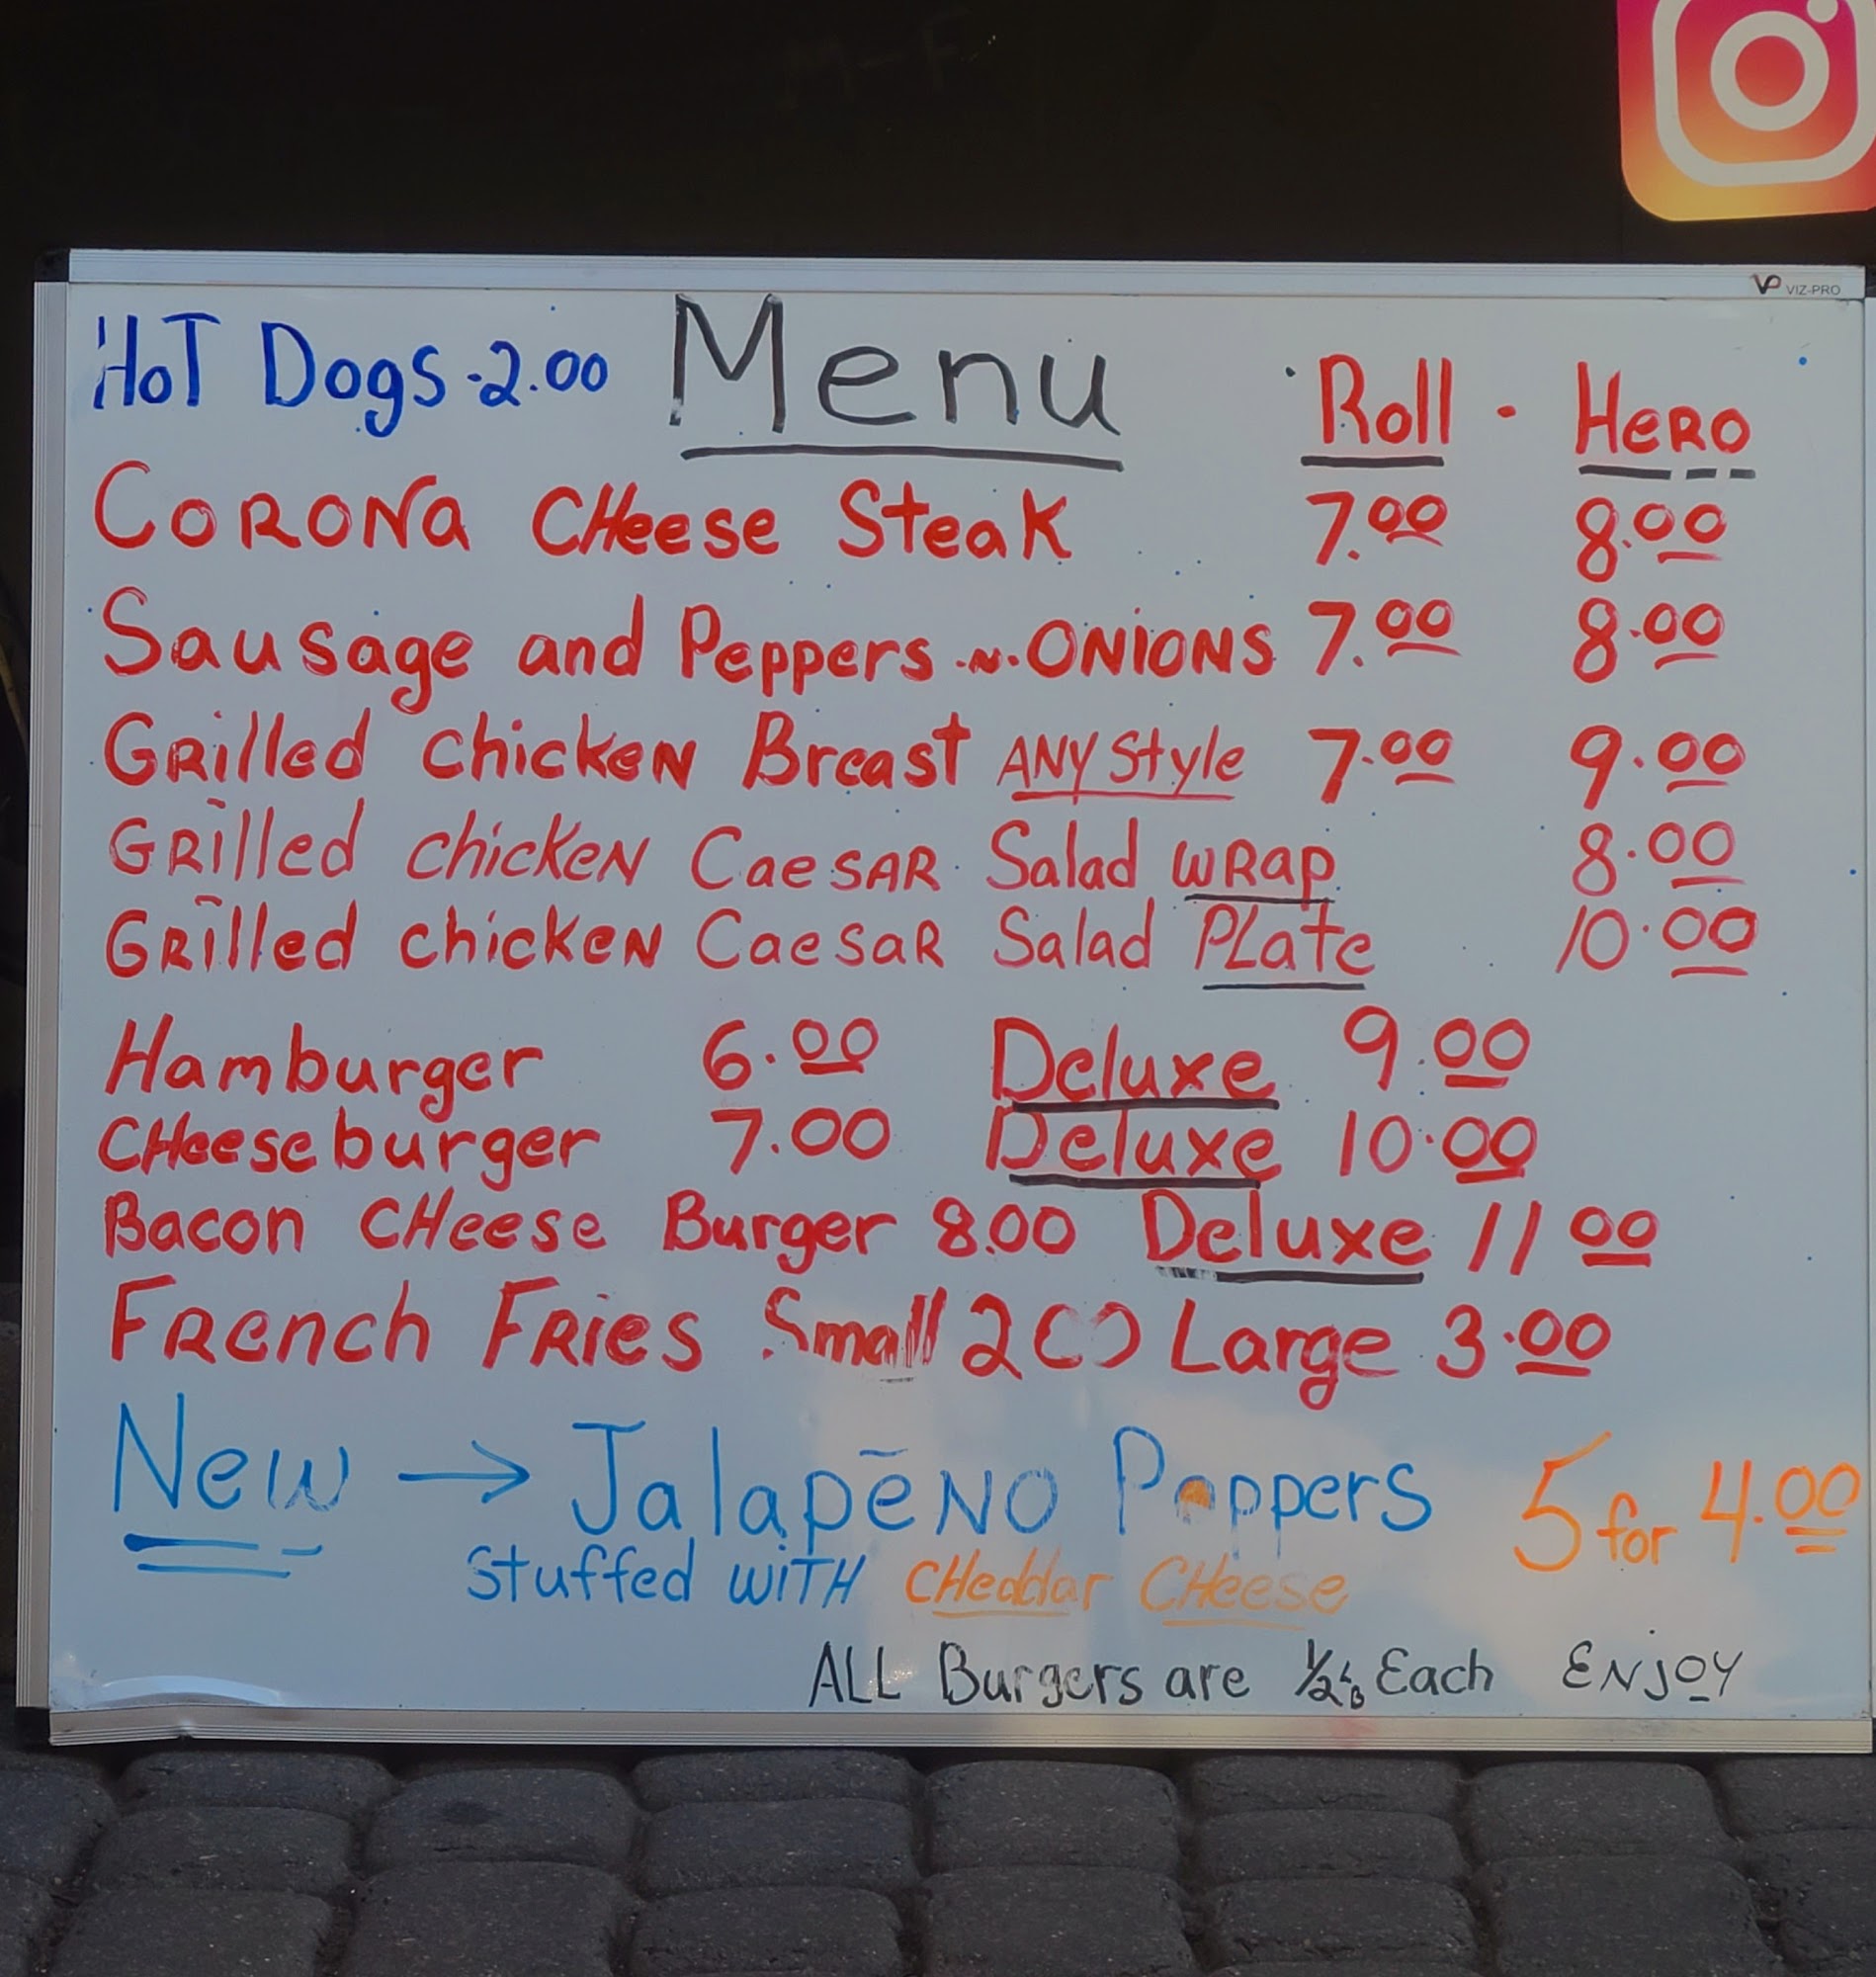 VP VIZ-PRO
HoT Dogs-2.00 Menu Roll - HeRO
CORONa CHeese SteaK 7.00 8.00
Sausage and Peppers -N- ONIONS 7.00 8.00
GRilled chickeN Breast ANY Style 7.00 9.00
GRilled chickeN CaeSAR Salad WRap 8.00
GRilled chickeN CaesaR Salad PLate 10.00
Hamburger 6.00 Deluxe 9.00
CHeeseburger 7.00 Deluxe 10.00
Bacon CHeese Burger 8.00 Deluxe 11 00
FRench FRies Small 2 Large 3.00
New → Jalapēno Poppers 5 for 4.00
Stuffed WiTH CHeddar CHeese
ALL Burgers are 1/2 Lb Each ENJOY